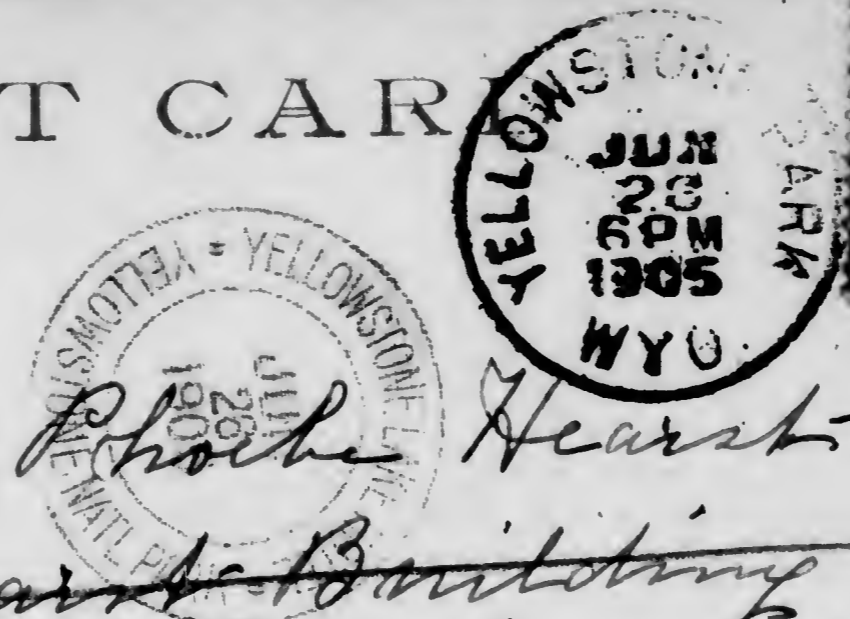 T CARD
YELLOWSTONE PARK
JUN
6 PM
1905
WYO.
YELLOWSTONE LAKE = YELLOWSTONE NAT'L PARK
JUN
26
190
Phoebe Hearst
Building